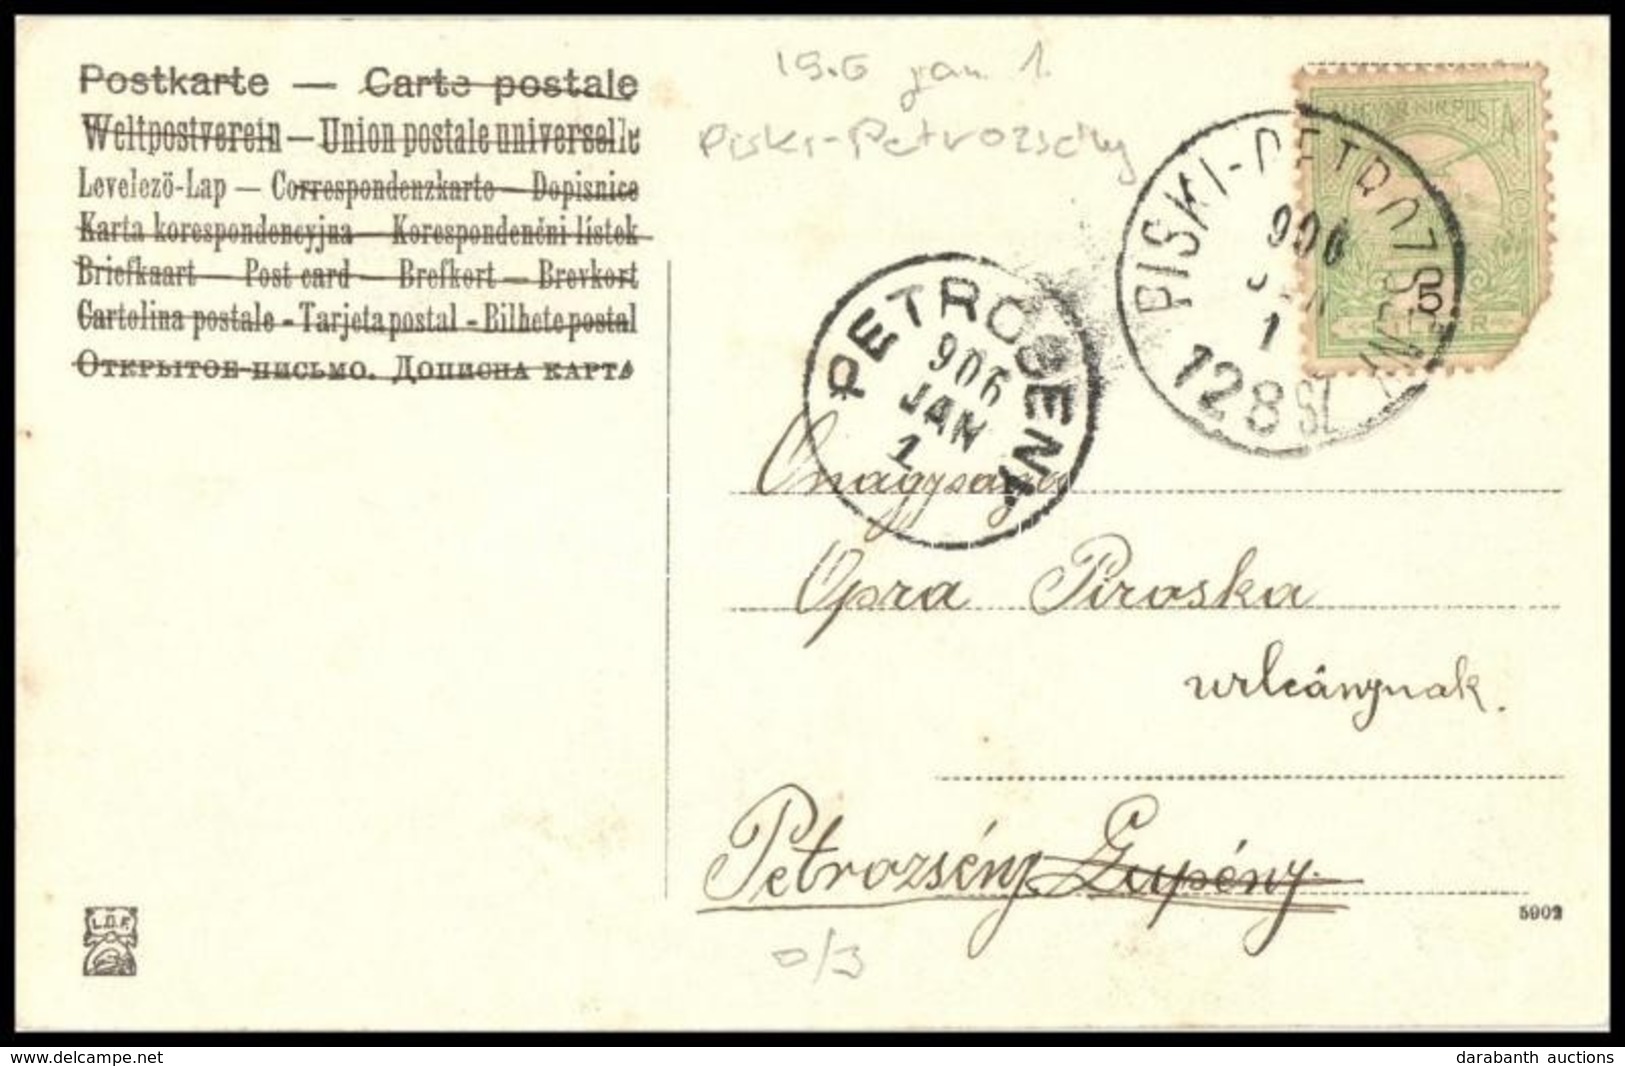 Postkarte — Carte postale
Weltpostverein — Union postale universelle
Levelező-Lap — Correspondenzkarte — Dopisnice
Karta korespondencyjna — Korespondenční lístek
Briefkaart — Post card — Brefkort — Brevkort
Cartolina postale - Tarjeta postal - Bilhete postal
Открытое письмо. Дописна карта
jan 1.
Piski-Petrozsény
MAGYAR KIR. POSTA
5
FILLÉR
PISKI-PETROZSÉNY
906
JAN
1
128 SZ
PETROSENY
906
JAN
1
Őnagysága
Opra Piroska
urleánynak.
Petrozsény Lupény.
5902
L.D.F.
delcampe.com
darabanth auctions